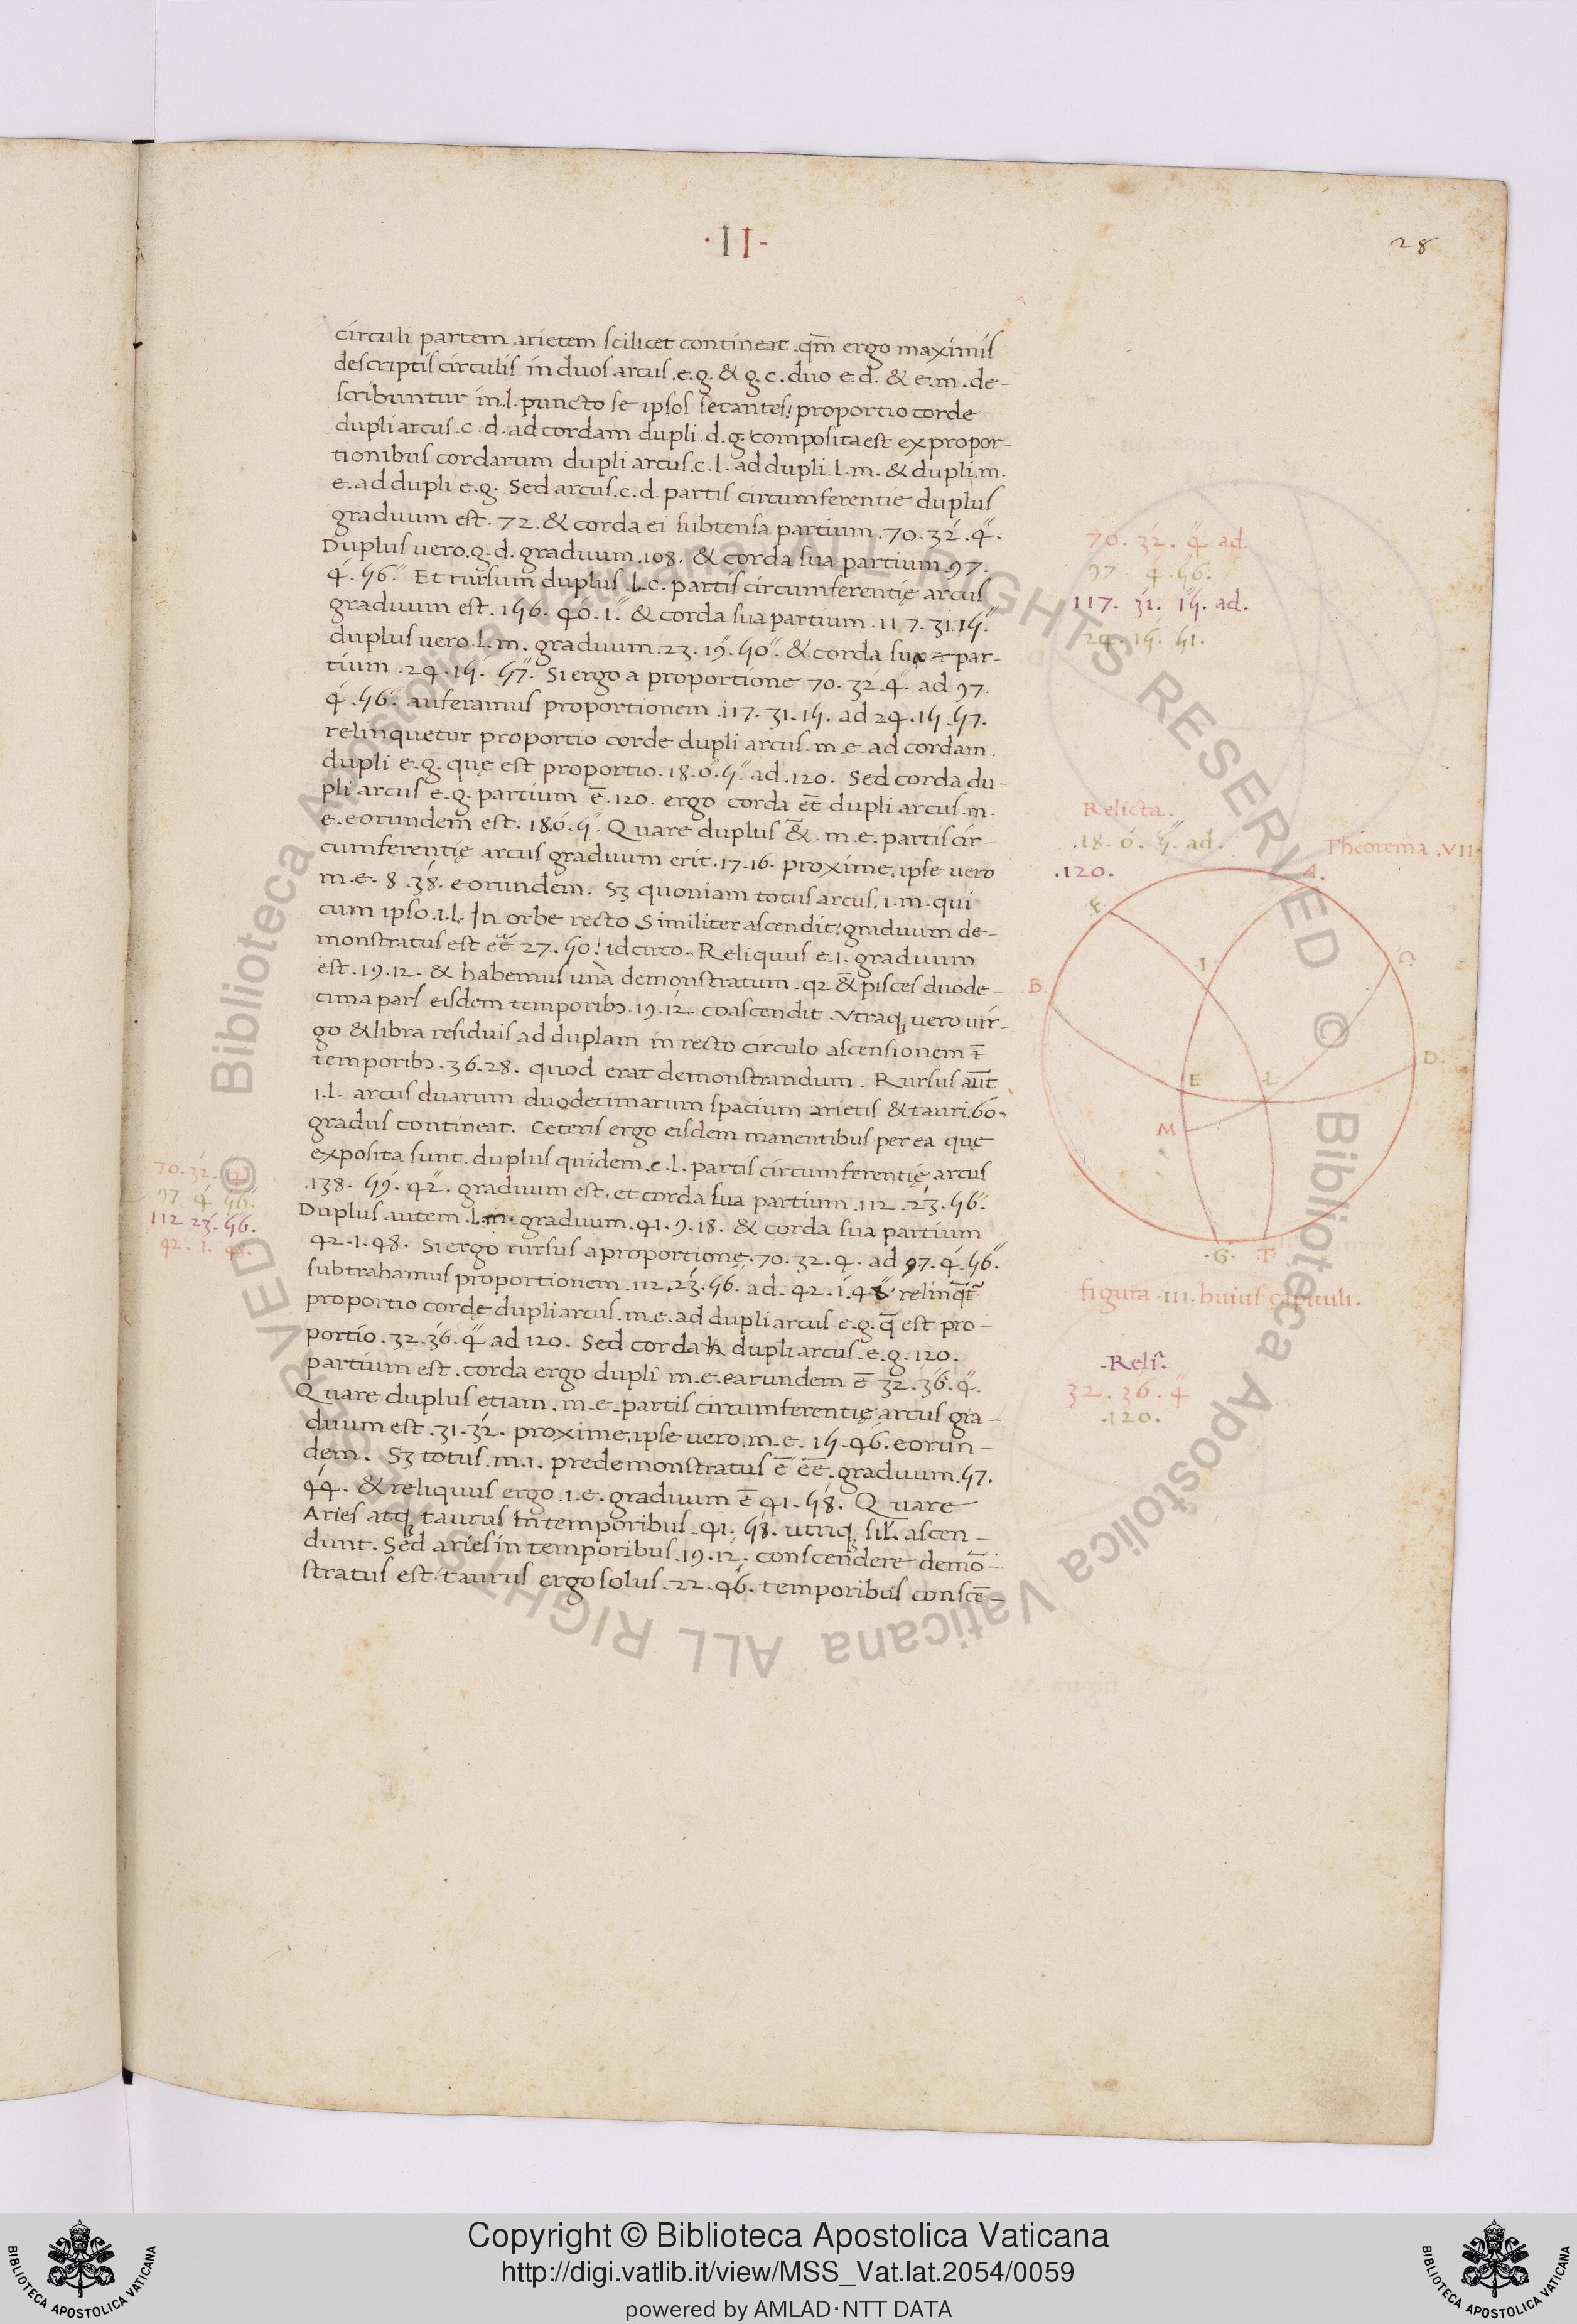 ·II·
28
circuli partem arietem scilicet contineat. qm̄ ergo maximis
descriptis circulis in duos arcus .e.g. & g.c. duo e.d. & e.m. de-
scribuntur in .l. puncto se ipsos secantes! proportio corde
dupli arcus .c.d. ad cordam dupli .d.g. composita est ex propor-
tionibus cordarum dupli arcus .c.l. ad dupli .l.m. & dupli .m.
e. ad dupli e.g. Sed arcus .c.d. partis circumferentie duplus
graduum est .72. & corda ei subtensa partium .70.32́.4̋.
Duplus vero .g.d. graduum .108. & corda sua partium .97.
4́.56̋. Et rursum duplus .l.c. partis circumferentię arcus
graduum est .156.40́.1̋. & corda sua partium .117.31.15̋.
duplus vero .l.m. graduum .23.19.50̋. & corda sua par-
tium .24.15.57̋. Si ergo a proportione 70.32́.4̋. ad 97.
4́.56̋. auferamus proportionem .117.31.15. ad 24.15.57.
relinquetur proportio corde dupli arcus .m.e. ad cordam.
dupli e.g. quę est proportio .18.0́.5̋. ad .120. Sed corda du-
pli arcus e.g. partium ē .120. ergo corda et̄ dupli arcus .m.
e. eorundem est .18.0́.5̋. Quare duplus &̄ .m.e. partis cir-
cumferentię arcus graduum erit .17.16. proxime. ipse vero
m.e. 8.38́. eorundem. Sꝫ quoniam totus arcus .i.m. qui
cum ipso .i.l. In orbe recto Similiter ascendit! graduum de-
monstratus est ee̅ 27.50! idcirco. Reliquus e.i. graduum
est .19.12. & habemus unà demonstratum. q2 &̄ pisces duode-
cima pars eisdem temporibꝫ .19.12́. coascendit. Vtraqꝫ vero vir-
go & libra residuis ad duplam in recto circulo ascensionem ī
temporibꝫ .36.28. quod erat demonstrandum. Rursus aut̄
.i.l. arcus duarum duodecimarum spacium arietis & tauri .60.
gradus contineat. Ceteris ergo eisdem manentibus per ea quę
exposita sunt. duplus quidem .c.l. partis circumferentię arcus
.138.59́.42̋. graduum est. et corda sua partium .112.23́.56̋.
Duplus autem .l.m. graduum .41.9.18. & corda sua partium
42.1.48. Si ergo rursus a proportione .70.32.4. ad 97.4́.56̋.
subtrahamus proportionem .112.23́.56̋. ad .42.1́.48̋ relinq̄t̄
proportio cordę dupli arcus .m.e. ad dupli arcus e.g. q̄ est pro-
portio .32.36́.4̋ ad 120. Sed corda dupli arcus .e.g. 120.
partium est. corda ergo dupli m.e. earundem ē 32.36́.4̋.
Quare duplus etiam .m.e. partis circumferentię arcus gra-
duum est .31.32́. proxime. ipse vero .m.e. 15.46́. eorun-
dem. Sꝫ totus .m.i. predemonstratus ē ee̅. graduum .57.
44́. & reliquus ergo .i.e. graduum ē 41.58́. Quare
Aries atqꝫ taurus in temporibus .41.58́. utriqꝫ sil̄. ascen-
dunt. Sed aries in temporibus .19.12́. conscendere demō-
stratus est. taurus ergo solus .22.46́. temporibus conscē-
70.32́.4̋
97 4́ 56̋.
112 23́.56̋.
42.1.48.
70.32́.4̋ ad.
97 4.56̋.
117.31́.15̋. ad.
24.15́.51.
Relicta.
.18.0́.5̋. ad.
.120.
Theorema .VII.
A.
F.
C.
.I
B.
D.
E
L
M
.G.
T.
figura .III. huius capituli.
.Reli̅.
32.36́.4̋
.120.
Copyright © Biblioteca Apostolica Vaticana
http://digi.vatlib.it/view/MSS_Vat.lat.2054/0059
powered by AMLAD·NTT DATA
BIBLIOTECA APOSTOLICA VATICANA
BIBLIOTECA APOSTOLICA VATICANA
© Biblioteca Apostolica Vaticana ALL RIGHTS RESERVED © Biblioteca Apostolica Vaticana ALL RIGHTS RESERVED